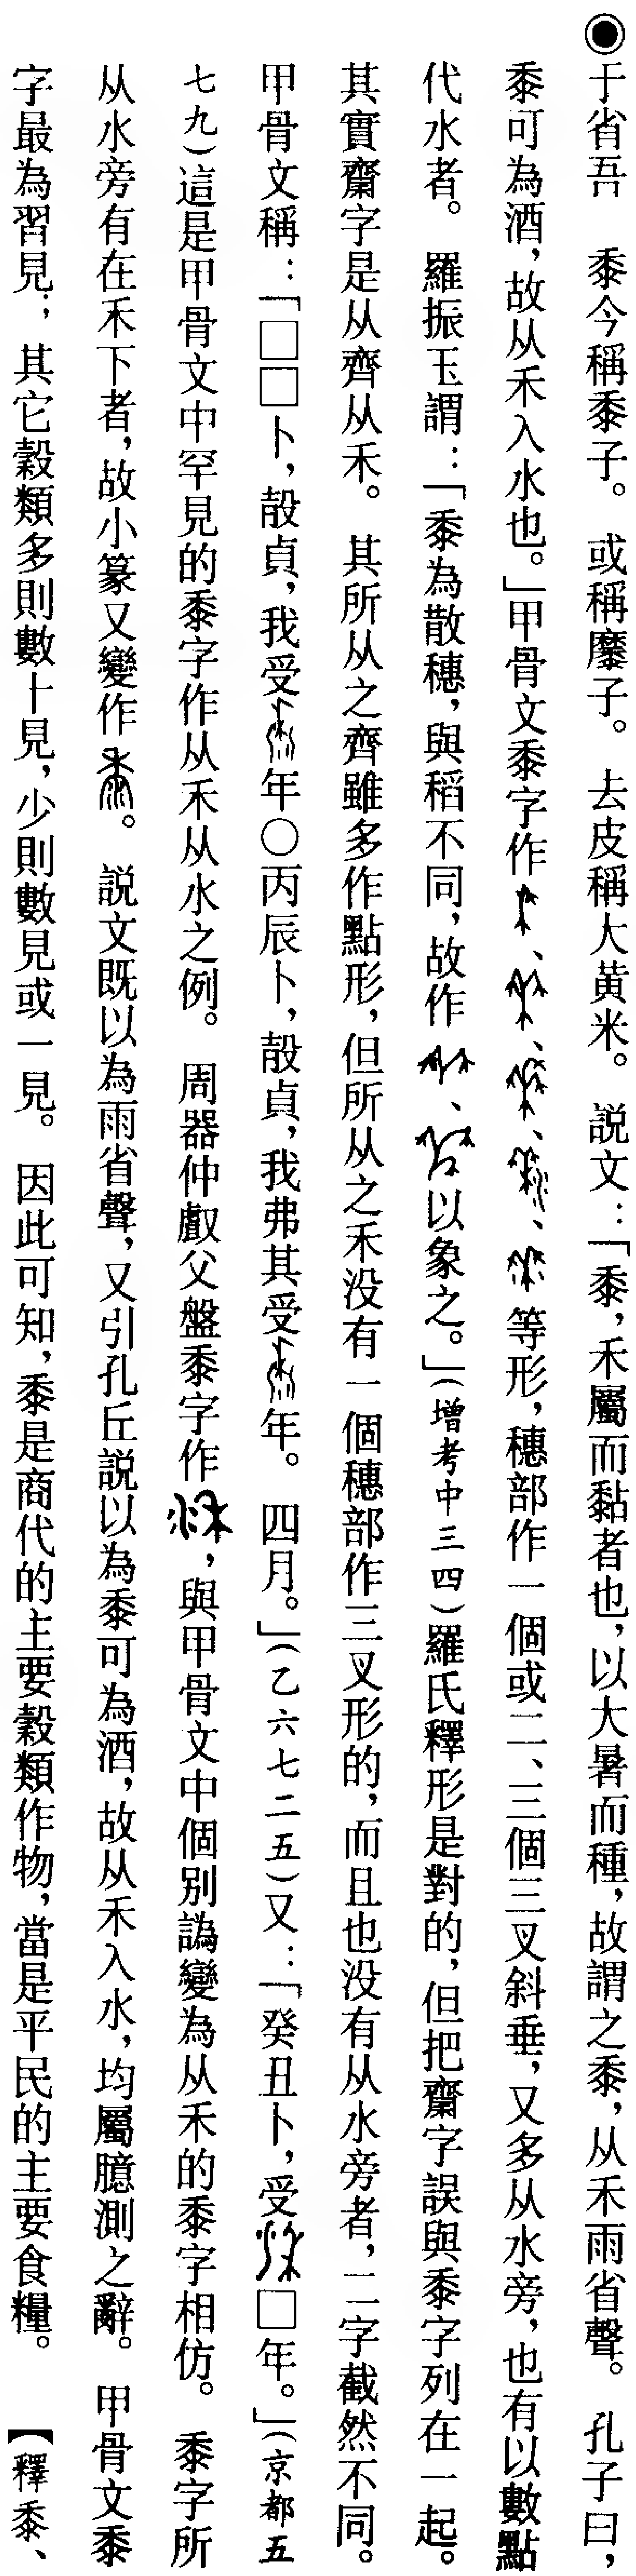 ◉于省吾　黍今稱黍子。或稱糜子。去皮稱大黄米。説文：「黍，禾屬而黏者也，以大暑而種，故謂之黍，从禾雨省聲。孔子曰，
黍可為酒，故从禾入水也。」甲骨文黍字作、、、、等形，穗部作一個或二、三個三叉斜垂，又多从水旁，也有以數點
代水者。羅振玉謂：「黍為散穗，與稻不同，故作、以象之。」（增考中三四）羅氏釋形是對的，但把齋字誤與黍字列在一起。
其實齋字是从齊从禾。其所从之齊雖多作點形，但所从之禾没有一個穗部作三叉形的，而且也没有从水旁者，二字截然不同。
甲骨文稱：「□□卜，㱿貞，我受年〇丙辰卜，㱿貞，我弗其受年。四月。」（乙六七二五）又：「癸丑卜，受□年。」（京都五
七九）這是甲骨文中罕見的黍字作从禾从水之例。周器仲𠭯父盤黍字作，與甲骨文中個别譌變為从禾的黍字相仿。黍字所
从水旁有在禾下者，故小篆又變作。説文既以為雨省聲，又引孔丘説以為黍可為酒，故从禾入水，均屬臆測之辭。甲骨文黍
字最為習見；其它穀類多則數十見，少則數見或一見。因此可知，黍是商代的主要穀類作物，當是平民的主要食糧。【釋黍、